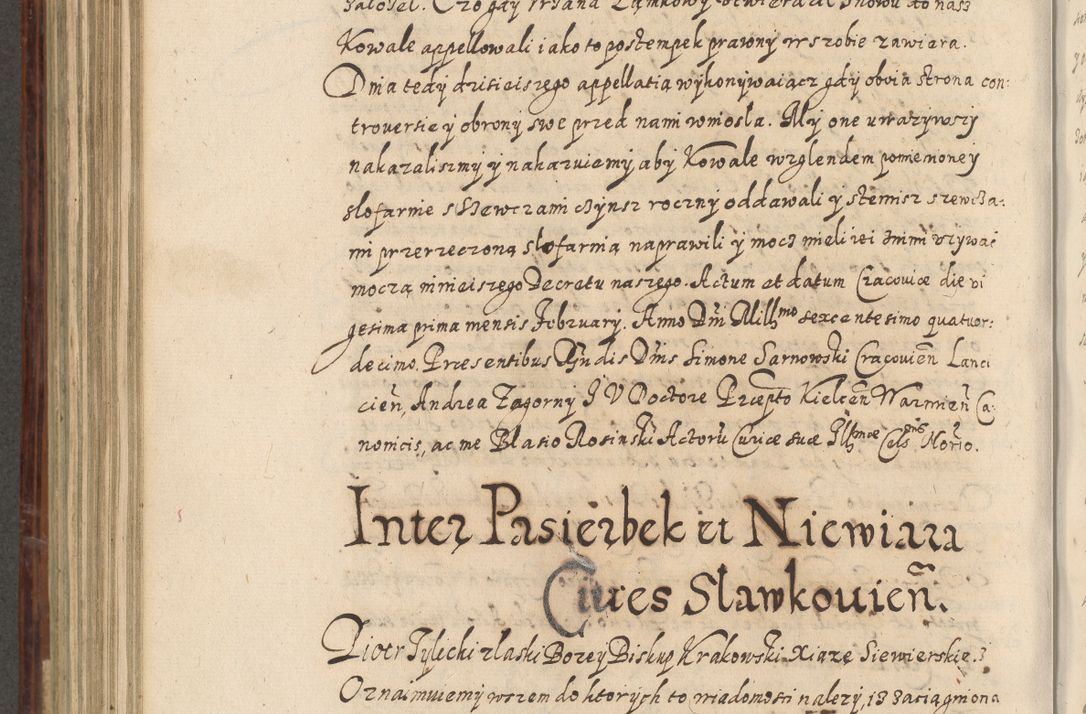 Kowale appellowali i ako to postempek prawny w szobie zawiera.
Dnia tedy dzisieiszego appellatią wykonywaiącz gdy oboia strona con:
troversie y obrony swe przed nami wniosla. My one uwazywszy
nakazaliszmy y nakazuiemy aby Kowale wzglendem pomienoney
slofarnie s Szewczami czynsz roczny oddawali y stemisz szewcza:
mi przerzeczoną slofarnią naprawili y mocz mieli iei znimi uzywac
moczą ninieiszego Decretu naszego. Actum et datum Cracoviæ die vi
gesima prima mensis February. Anno Dni Mill̃mo sexcentesimo quatuor:
decimo. Præsentibus Rndis Dnis Simone Sarnowski Cracovień Lanci
cień, Andrea Zagorny J V Doctore Præpto Kielceń Warmień Ca:
nonicis, ac me Blasio Rosinski Actorũ Curiæ suæ Illmæ Cels: Norio.
Inter Pasierbek et Niewiara
Ciues Slawkouień.
Piotr Tylicki z laski Bozey Biskup Krakowski Xiąze Siewierskie.
Oznaimuiemy wszem do ktorych to wiadomosci nalezy, iz zaciągniona